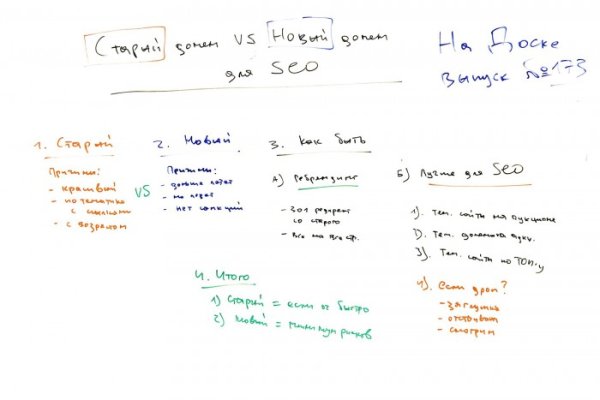 Старый домен VS Новый домен
для SEO
На Доске
выпуск №173
1. Старый
Причины:
- красивый
- по тематике
с ссылками
- с возрастом
VS
2. Новый
Причины:
- дольше
- нет санкций
3. Как быть
А) Ребрендинг
- 301 редирект
со старого
- все на все стр.
Б) Лучше для SEO
1). Тем. сайты на аукционе
2). Тем. домены аукц.
3). Тем. сайты по ТОП-у
4). Если дроп?
- заглушка
- отстаиваем
- смотрим
4. Итого
1) Старый = если ок быстро
2) Новый = минимум рисков